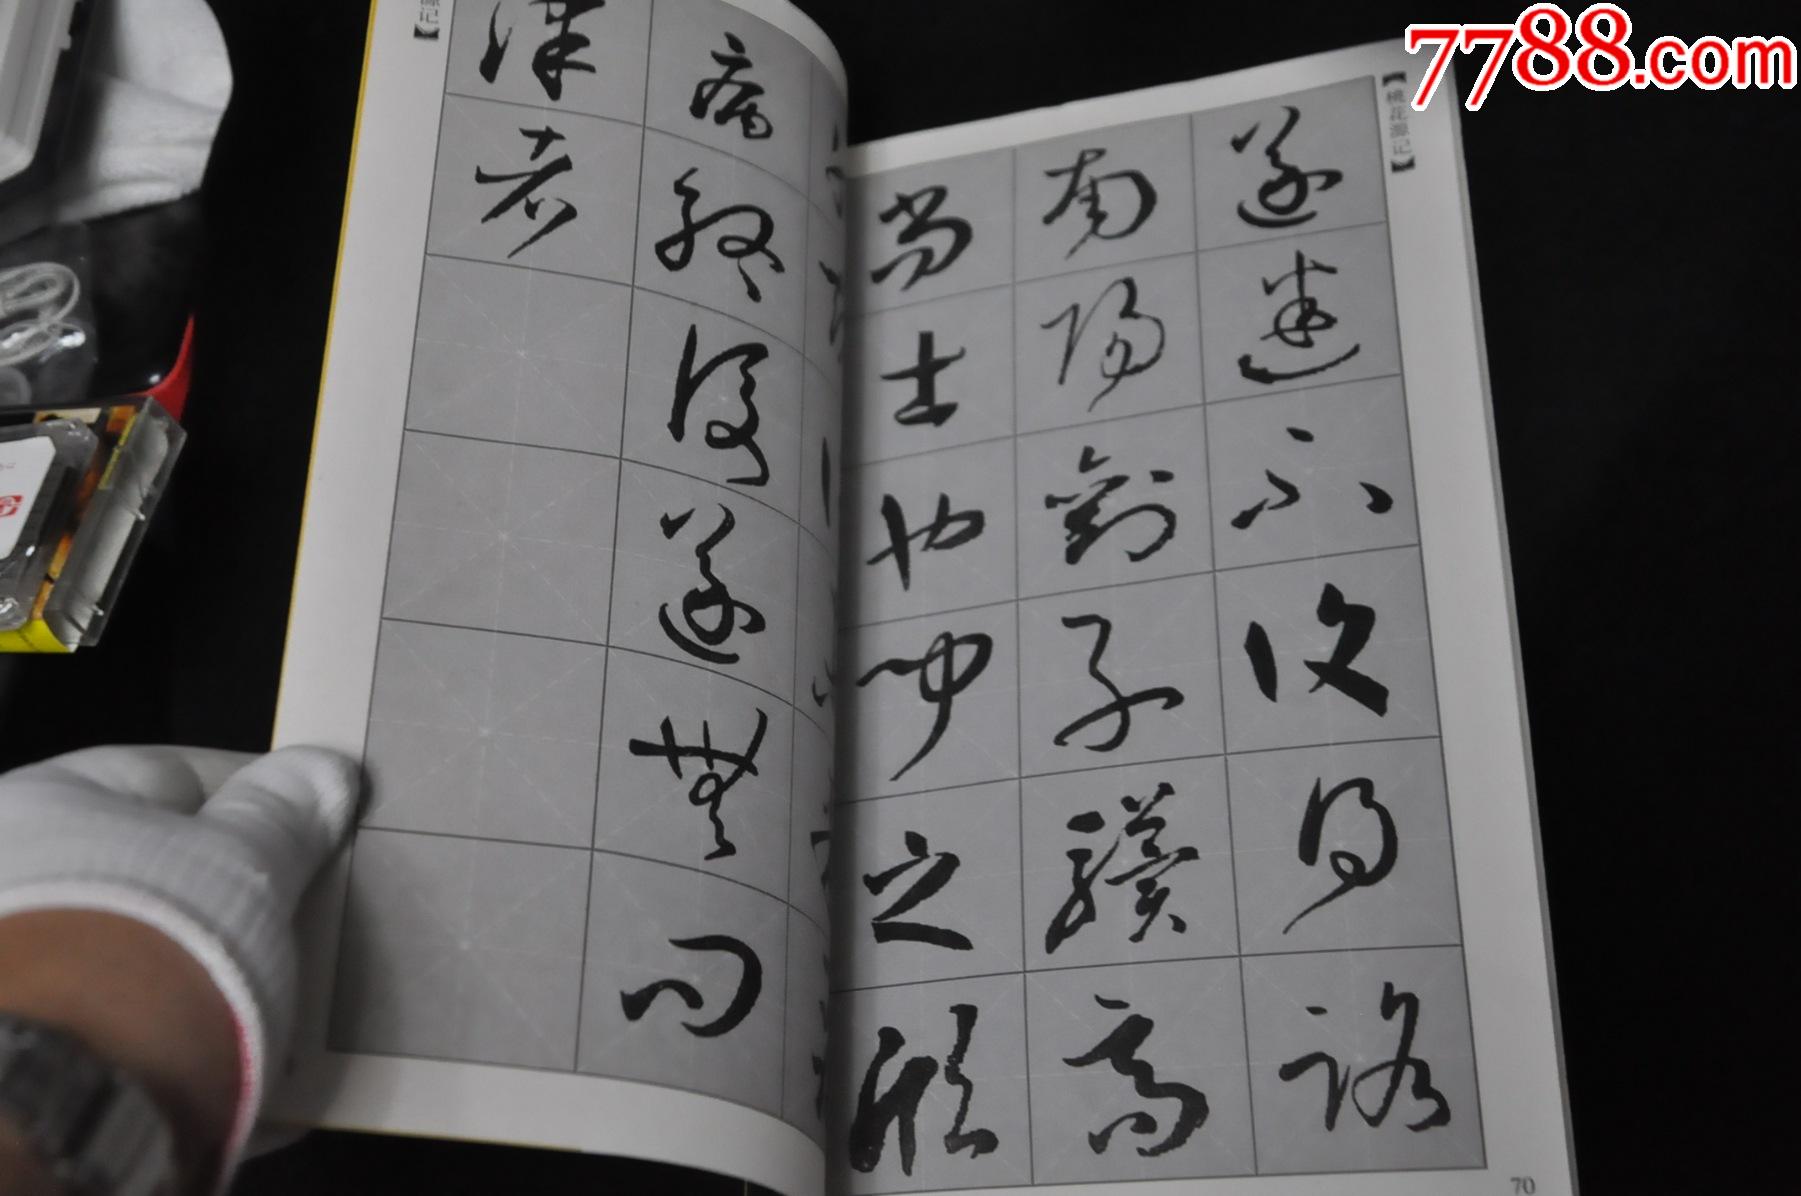 7788.com
【桃花源记】
遂迷不復得路
南陽劉子驥高
尚士也聞之欣
70
源记】
病終後遂無問
津者